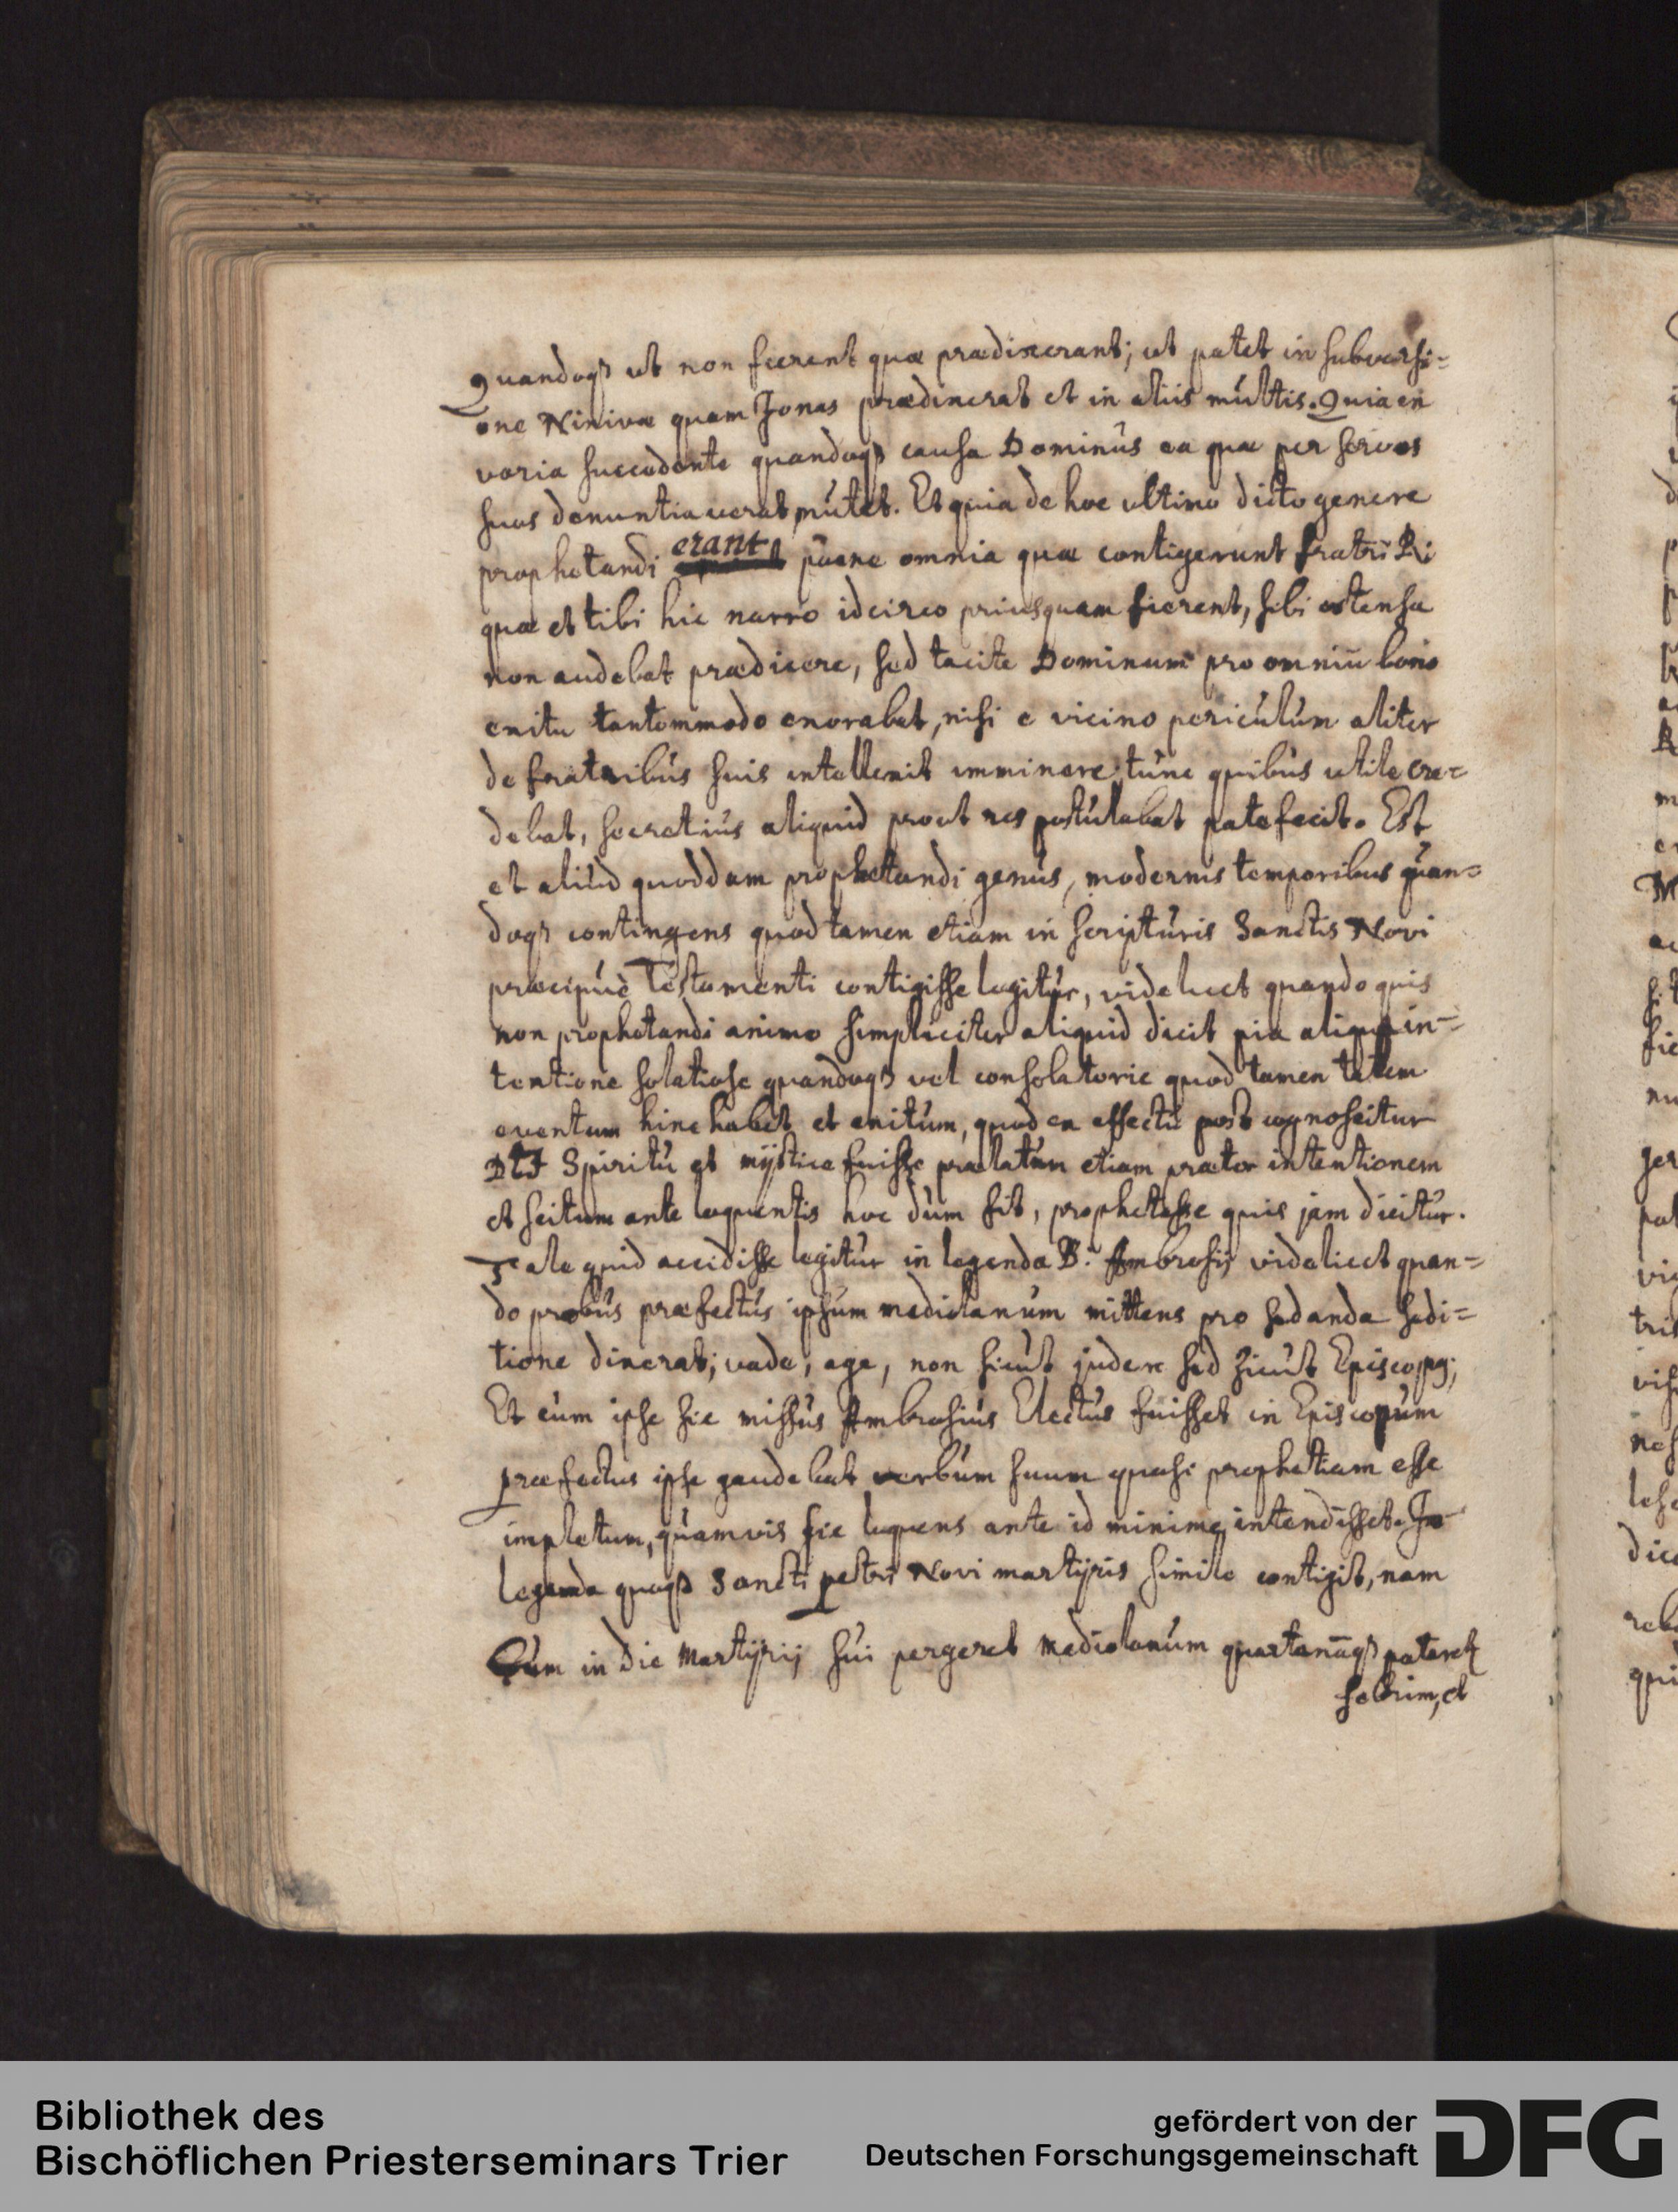 Quandoqꝫ ut non fierent quæ prædixerant; ut patet in subversi=
one Ninivæ quam Jonas prædixerat et in aliis multis. Quia ex
varia succedente quandoqꝫ causa Dominus ea quæ per servos
suos denuntiaverat, mutet. Et quia de hoc ultimo dicto genere
prophetandi erant pæne omnia quæ contigerunt fratri R:
quæ et tibi hic narro idcirco priusquam fierent, sibi ostensa
non audebat prædicere, sed tacite Dominum pro omniū bono
exitu tantommodo exorabat, nisi e vicino periculum aliter
de fratribus suis intellexit imminere; tunc quibus utile cre=
debat, secretius aliquid prout res postulabat patefecit. Est
et aliud quoddam prophetandi genus, modernis temporibus quan=
doqꝫ contingens quod tamen etiam in scripturis Sanctis Novi
præcipuè Testamenti contigisse legitur, videlicet quando quis
non prophetandi animo simpliciter aliquid dicit pia aliqua in=
tentione solatiose quandoqꝫ vel consolatorie quod tamen talem
eventum hinc habet et exitum, quod ex effectu post cognoscitur
DEI Spiritu et mÿstice fuisse prælatum etiam præter intentionem
et scitum ante loquentis hoc dum fit, prophetasse quis jam dicitur.
Tale quid accidisse legitur in legenda B. Ambrosij videlicet quan=
do probus præfectus ipsum mediolanum mittens pro sedanda sedi=
tione dixerat; vade, age, non sicut judex sed sicut Episcopꝰ;
Et cum ipse sic missus Ambrosius Electus fuisset in Episcopum
præfectus ipse gaudebat verbum suum quasi prophetiam esse
impletum, quamvis sic loquens ante id minime intendisset. In
legenda quoqꝫ Sancti petri Novi martÿris simile contigit, nam
Cum in die Martÿrij sui pergeret mediolanum quartanāqꝫ pateret
febrim, et
Bibliothek des
Bischöflichen Priesterseminars Trier
gefördert von der
Deutschen Forschungsgemeinschaft
DFG